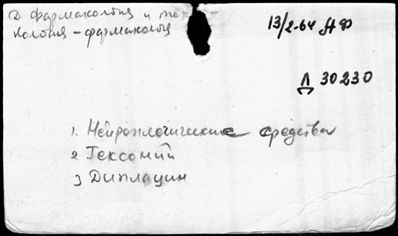 Д фармакология и ток-
кология - фармакология
13/2-64 АФ
Д 30230
1. Нейроплегические средства
2 Гексоний
3 Диплацин